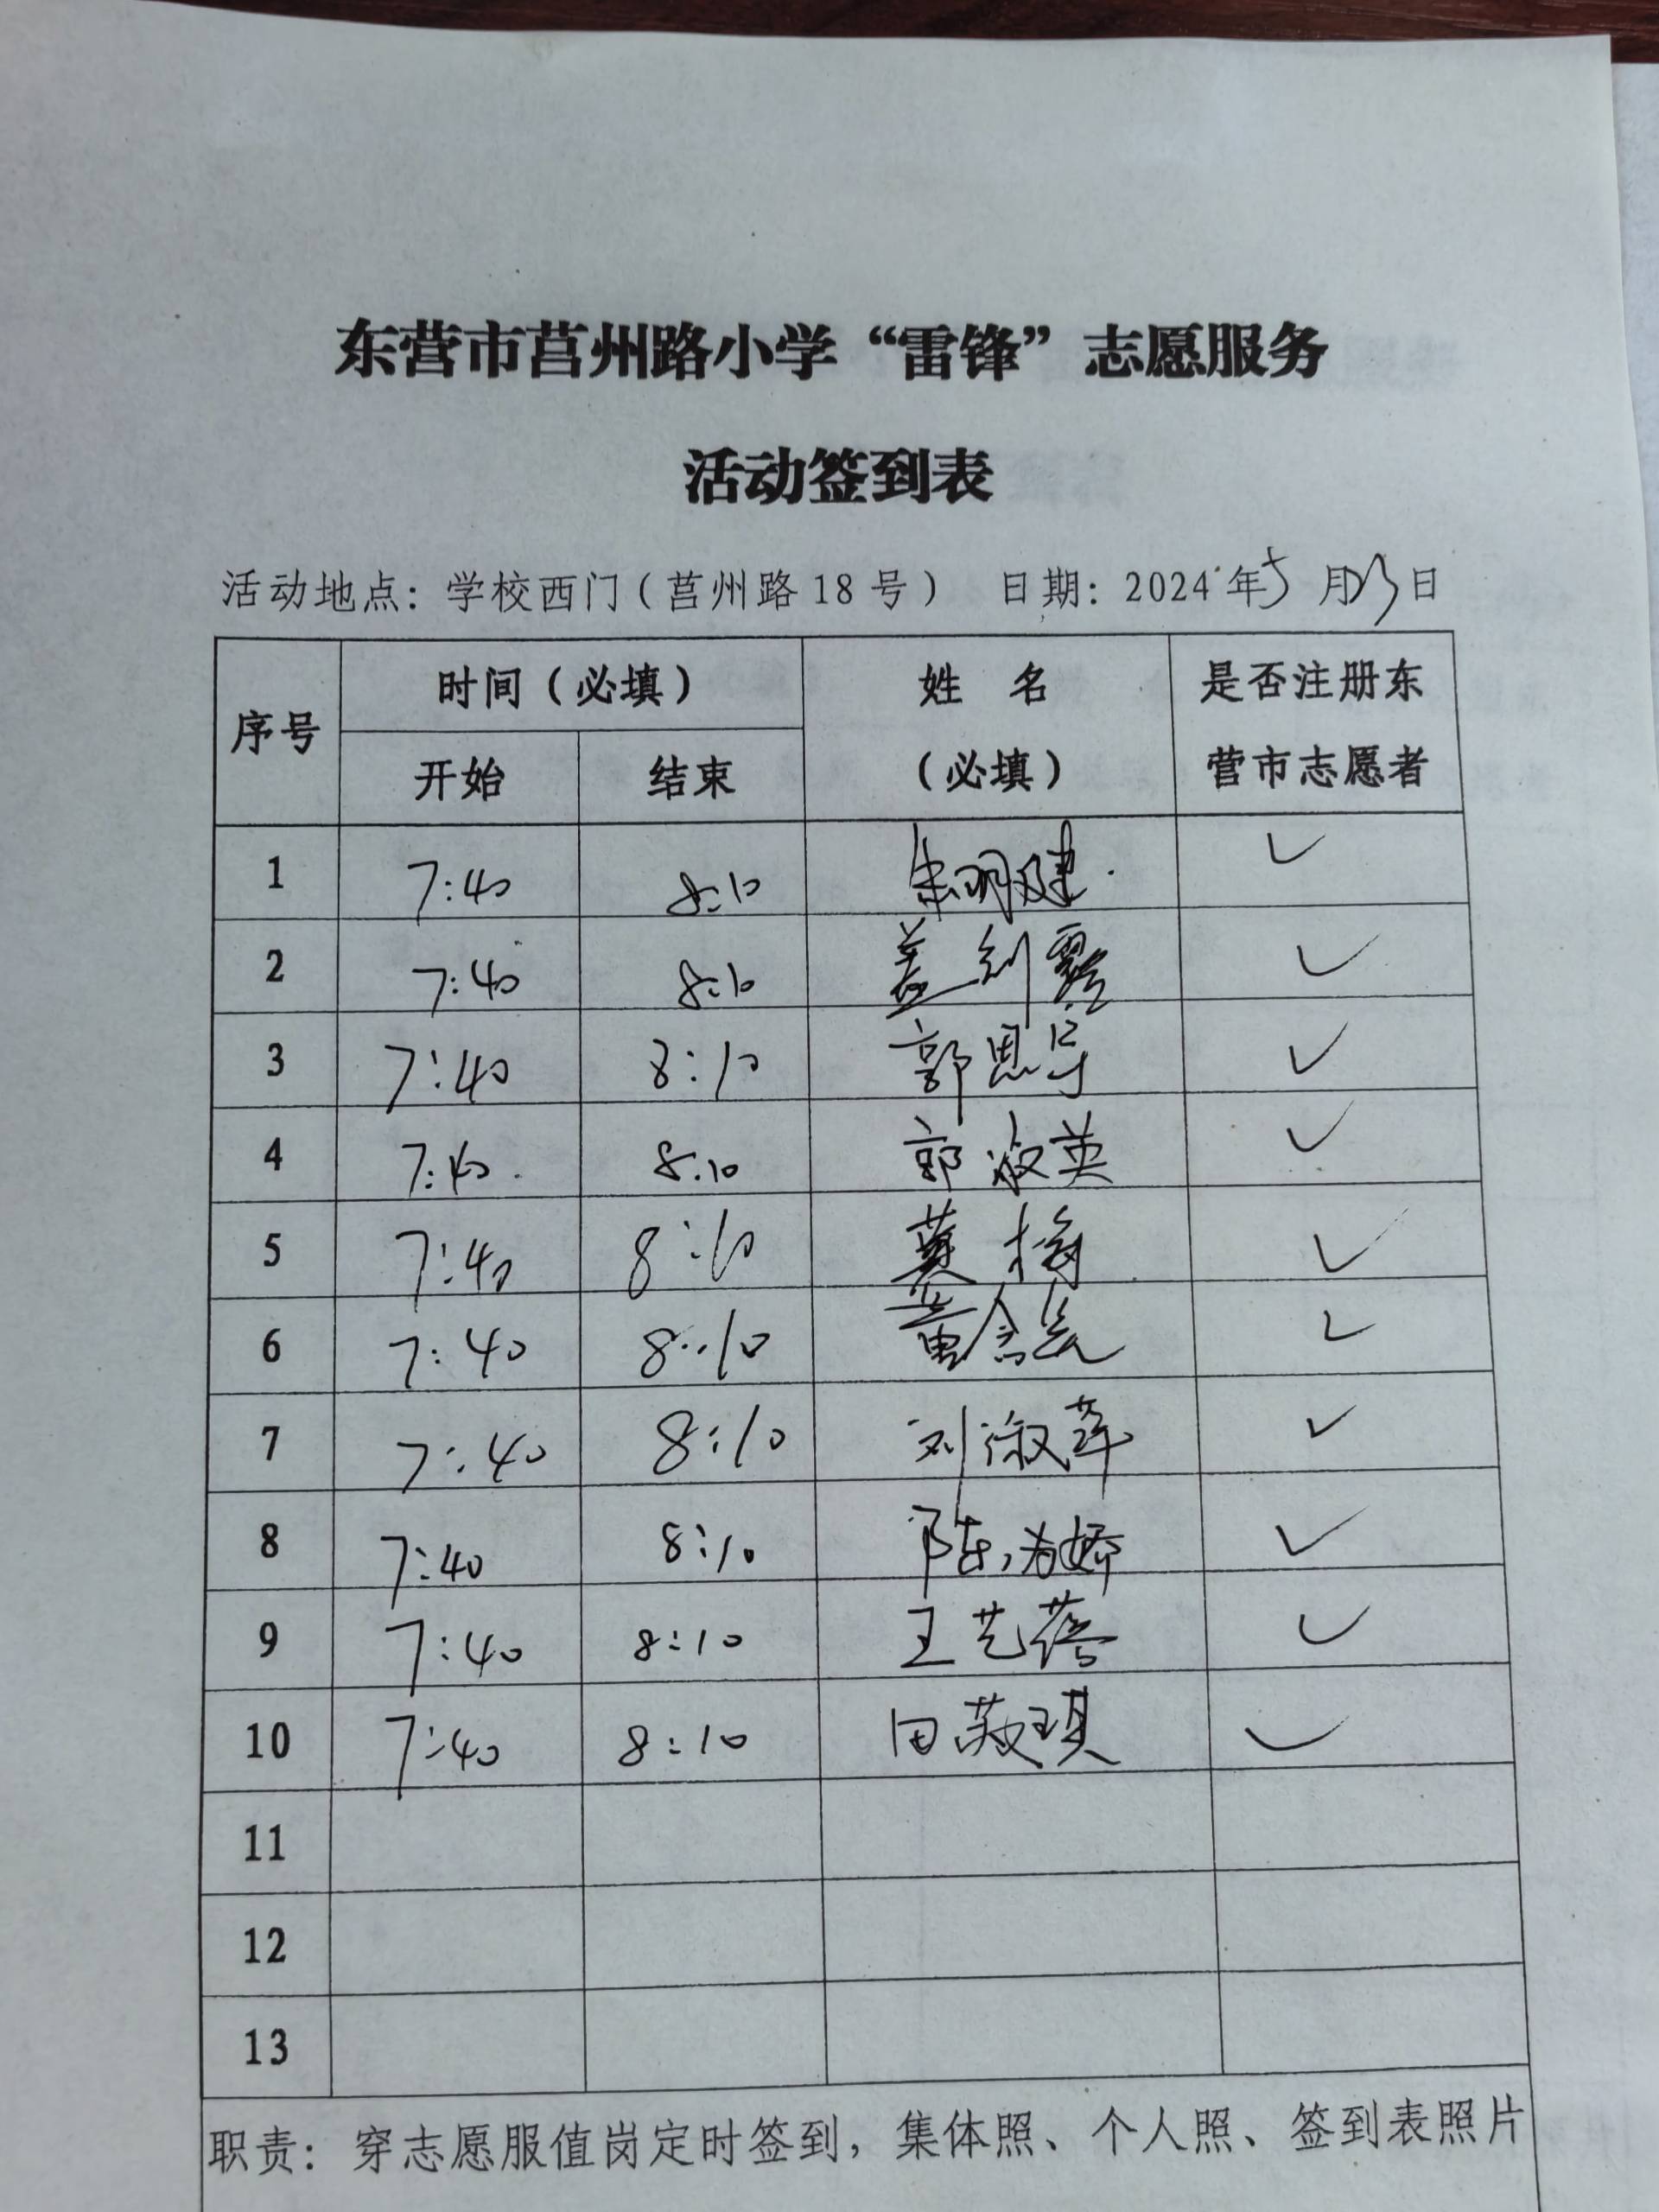 东营市莒州路小学“雷锋”志愿服务
活动签到表
活动地点：学校西门（莒州路18号） 日期：2024年5月13日
序号 时间（必填） 姓 名 是否注册东
开始 结束 （必填） 营市志愿者
1 7:40 8:10 朱明建 ✓
2 7:40 8:10 盖剑 ✓
3 7:40 8:10 郭思导 ✓
4 7:40 8:10 郭淑英 ✓
5 7:40 8:10 ✓
6 7:40 8:10 黄 ✓
7 7:40 8:10 刘淑萍 ✓
8 7:40 8:10 陈 娇 ✓
9 7:40 8:10 王艺蓓 ✓
10 7:40 8:10 田 琪 ✓
11
12
13
职责：穿志愿服值岗定时签到，集体照、个人照、签到表照片